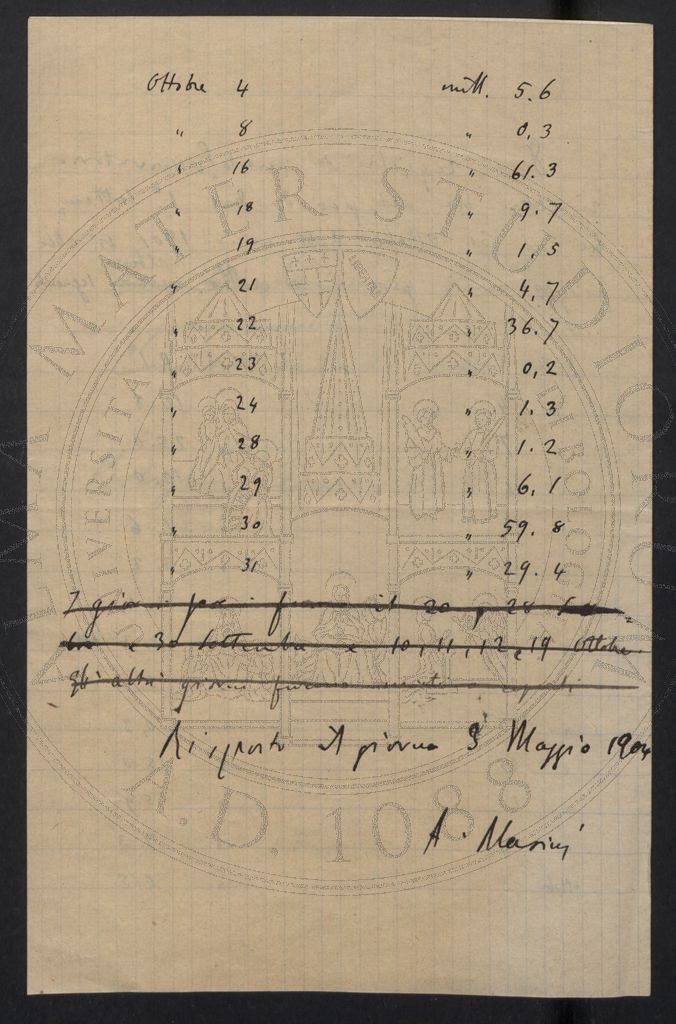 Ottobre 4 mill. 5.6
" 8 " 0.3
" 16 " 61.3
" 18 " 9.7
" 19 " 1.5
" 21 " 4.7
" 22 " 36.7
" 23 " 0,2
" 24 " 1.3
" 28 " 1.2
" 29 " 6.1
" 30 " 59.8
" 31 " 29.4
7 giorni il 20, 28
e 30 Settembre e 10, 11, 12, 19 Ottobre.
altri giorni furono
Risposto il giorno 3 Maggio 1904
A. Masini
ALMA MATER STUDIORUM
UNIVERSITA DI BOLOGNA
LIBERTAS
A.D. 1088